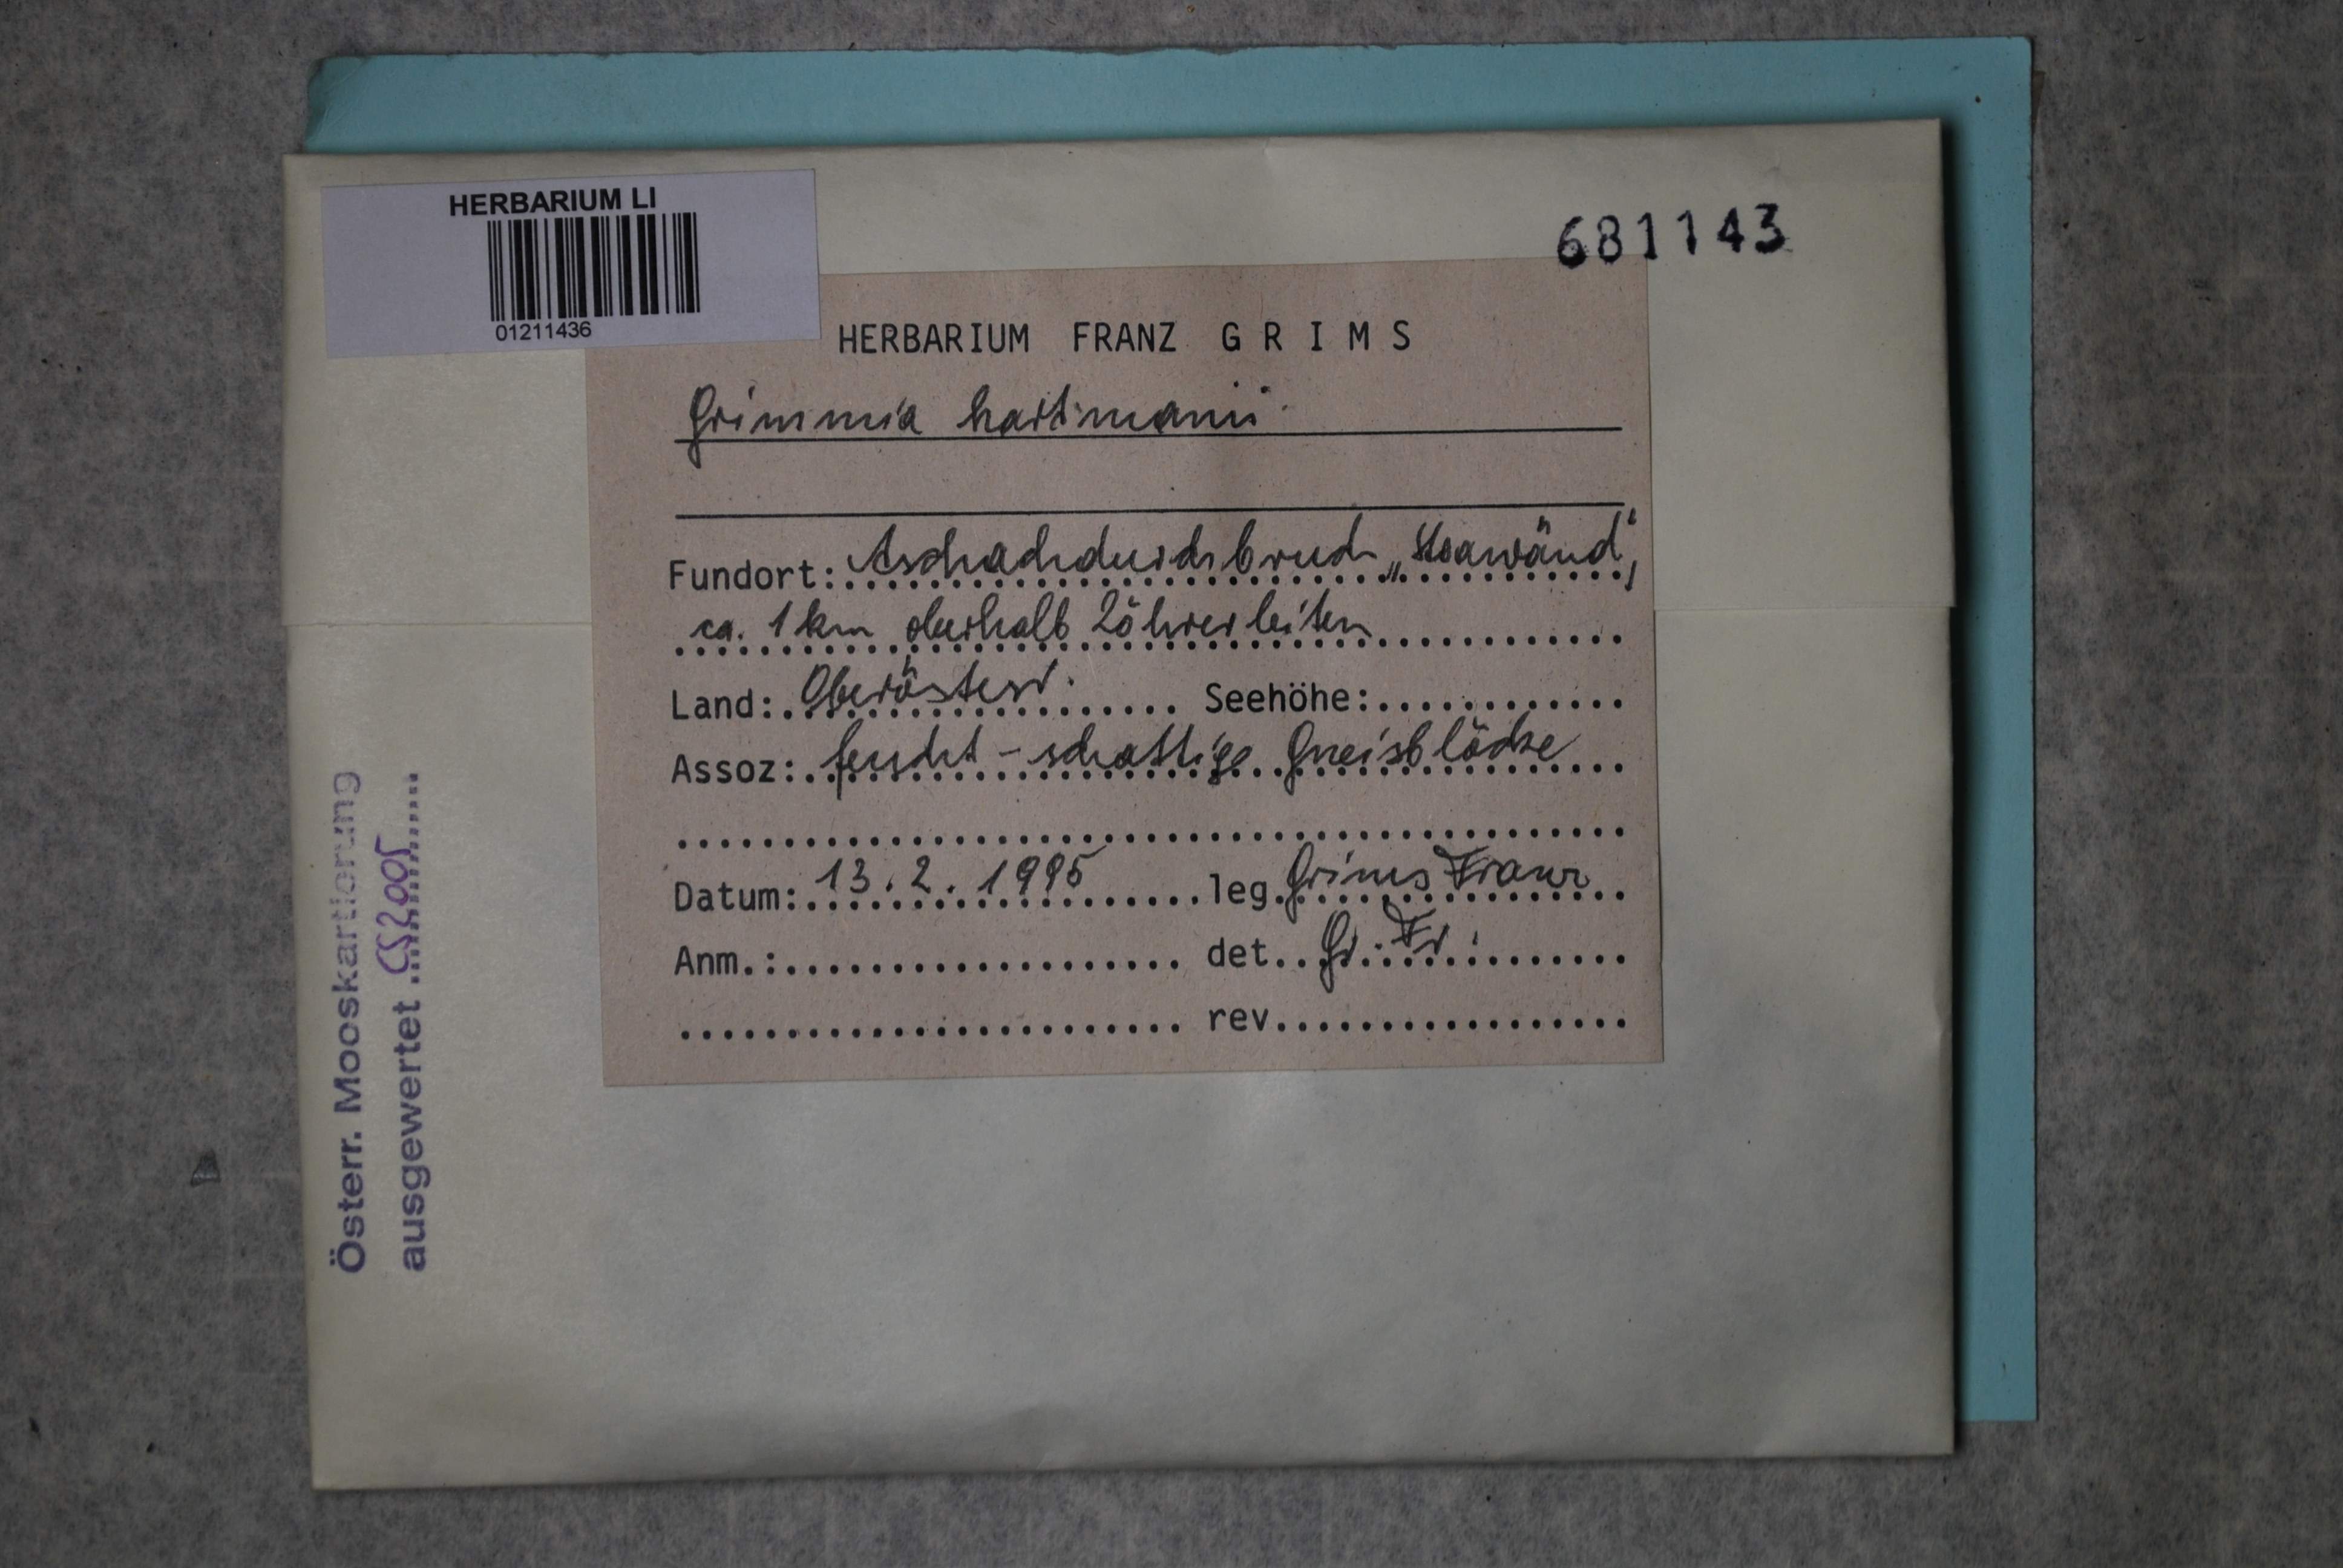 HERBARIUM LI
01211436
681143
HERBARIUM FRANZ G R I M S
Grimmia hartmanii
Fundort: Aschachdurchbruch „Steawänd",
ca. 1 km oberhalb Löhrerleiten
Land: Oberösterr. Seehöhe:
Assoz: feucht - schattige Gneisblöcke
Datum: 13.2.1995 leg. Grims Franz
Anm.: det. Gr. Fr.
rev.
Österr. Mooskartierung
ausgewertet CS2005